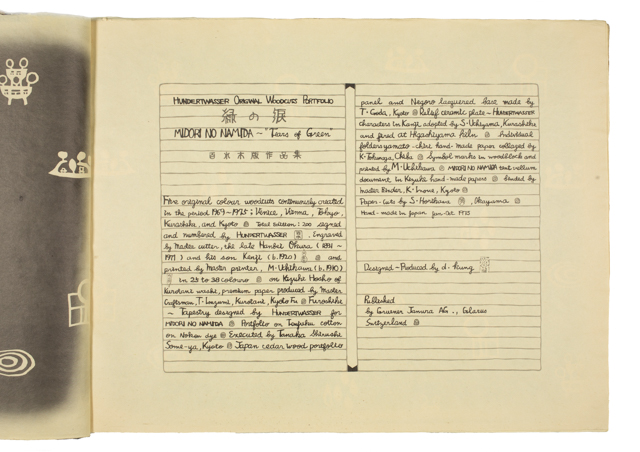 HUNDERTWASSER ORIGINAL WOODCUTS PORTFOLIO
緑の涙
MIDORI NO NAMIDA ~ "Tears of Green"
百水木版作品集
Five original colour woodcuts continuously created
in the period 1967 - 1975: Venice, Vienna, Tokyo,
Kurashiki, and Kyoto Total Edition: 200 signed
and numbered by HUNDERTWASSER, Engraved
by Master cutter, the late Hanbei Okura (
) and his son Kenji (b. 1920) and
printed by Master printer, M. Uchikawa (b.
in 23 to 38 colours on Kizuki Hosho of
Kurotani washi, premium paper produced by Master
Craftsman, T. Kurotani, Kyoto Fu Furoshiki
~ Tapestry designed by HUNDERTWASSER for
MIDORI NO NAMIDA Portfolio on cotton
on dye Executed by Tanaka
Some-ya, Kyoto Japan cedar wood portfolio
panel and Negoro lacquered base made by
T. Kyoto Relief ceramic plate - HUNDERTWASSER
characters in Kanji, adopted by S. Uchiyama, Kurashiki
and fired at Higashiyama kiln Individual
folders yamato-chiri hand-made paper collaged by
K. Tokinaga, Chiba Symbol marks in woodblock and
printed by M. Uchikawa MIDORI NO NAMIDA text vellum
document in hand-made papers binded by
master Binder, K. Inoue, Kyoto
Paper-cuts by S. Horikawa, Okayama
Hand-made in Japan Jan-Oct. 1975
Designed - Produced by d. kung
Published
by Gruener Janura AG., Glarus
Switzerland